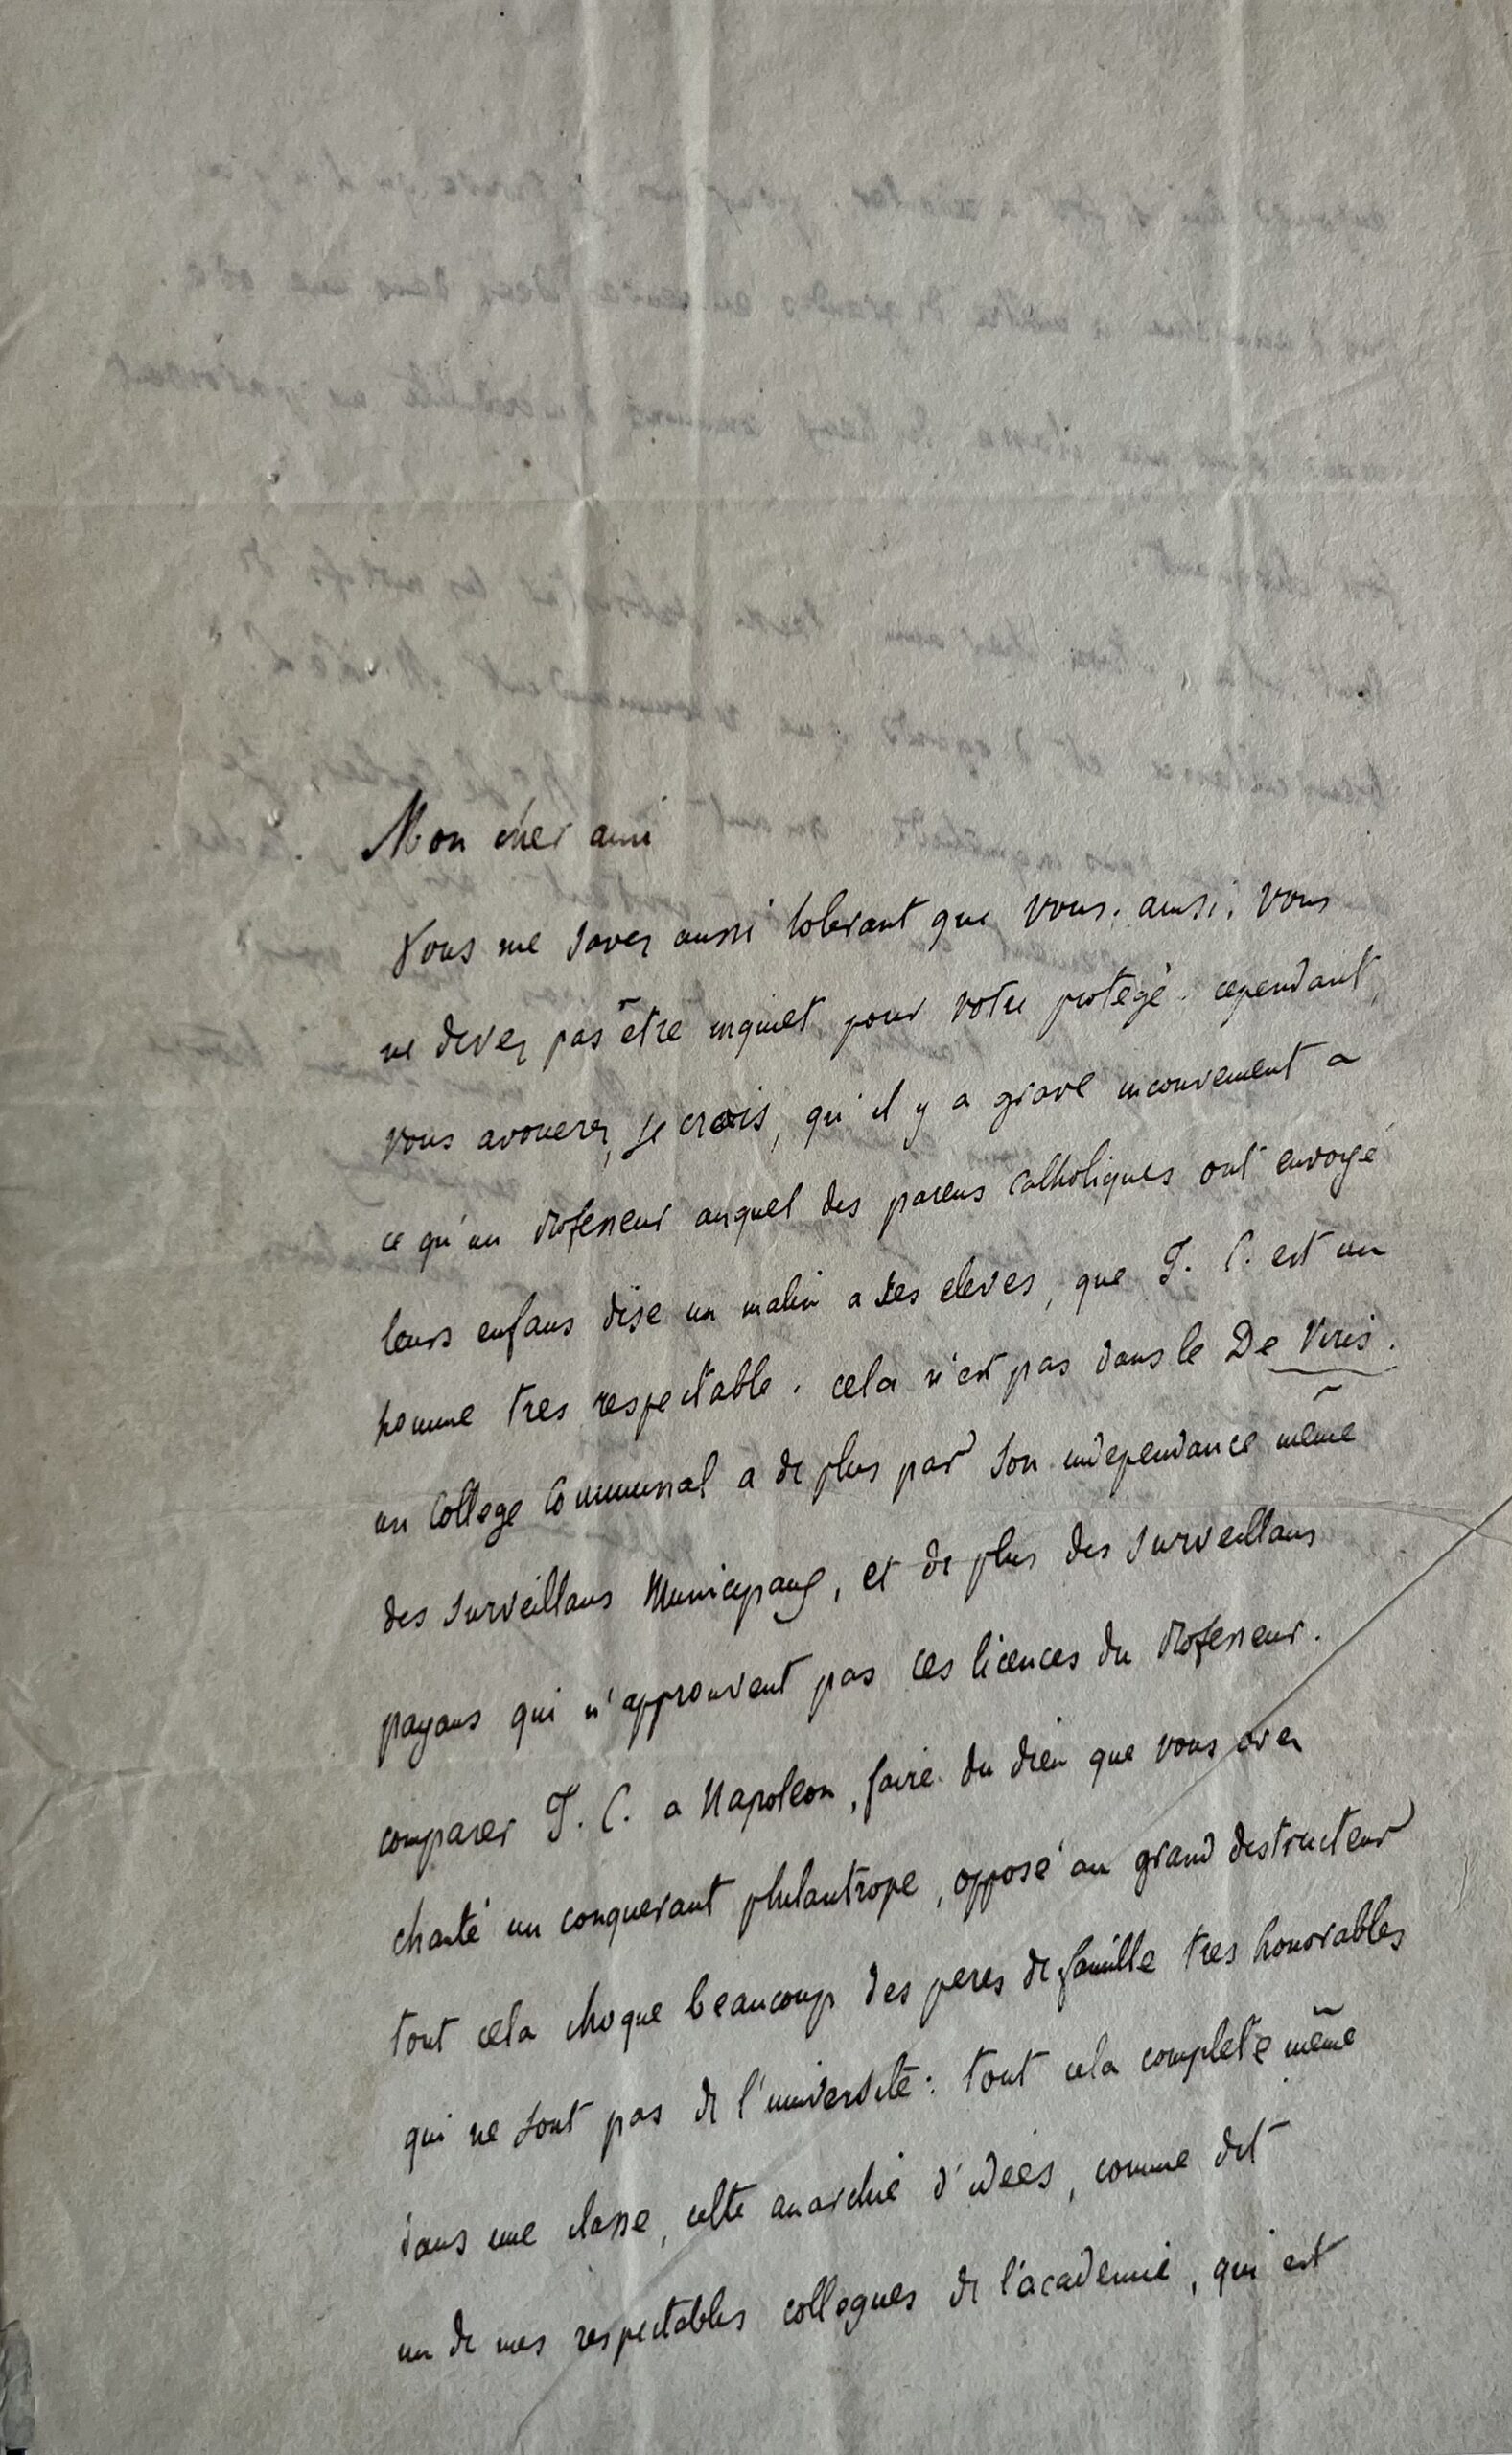 Mon cher ami
Vous me savez aussi tolerant que vous. ainsi, vous
ne devez pas être inquiet pour votre protegé. cependant,
vous avouerez, je crois, qu'il y a grave inconvenient a
ce qu'un professeur auquel des parens catholiques ont envoyé
leurs enfans dise un matin a ses eleves, que J. C. est un
homme tres respectable. cela n'est pas dans le De Viris.
un College Communal a de plus par son independance même
des surveillans Municipaux, et de plus des surveillans
payans qui n'approuvent pas ces licences du professeur.
comparer J. C. a Napoleon, faire du dieu que vous avez
chanté un conquerant philantrope, opposé au grand destructeur
tout cela choque beaucoup des peres de famille tres honorables
qui ne sont pas de l'université: tout cela complete même
dans une classe, cette anarchie d'idées, comme dit
un de mes respectables collegues de l'academie, qui est